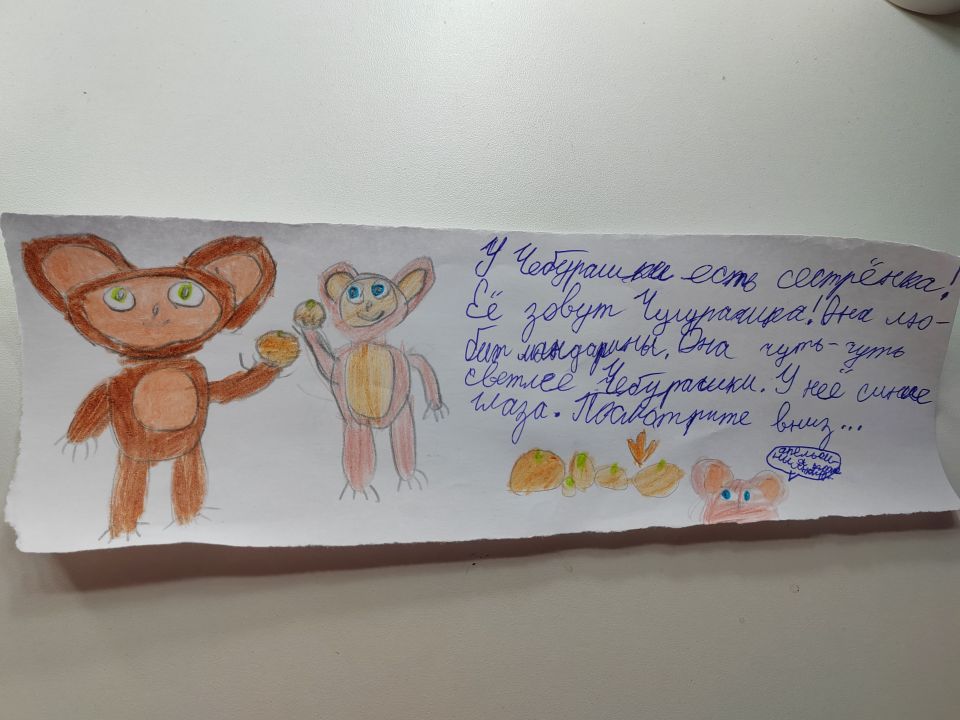 У Чебурашки есть сестрёнка!
Её зовут Чушурашка! Она лю-
бит мандарины. Она чуть-чуть
светлее Чебурашки. У неё синие
глаза. Посмотрите вниз...
апельси
ны